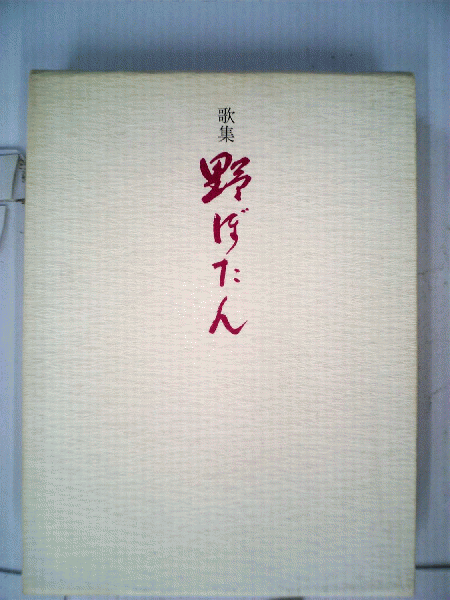 歌集
野ぼたん